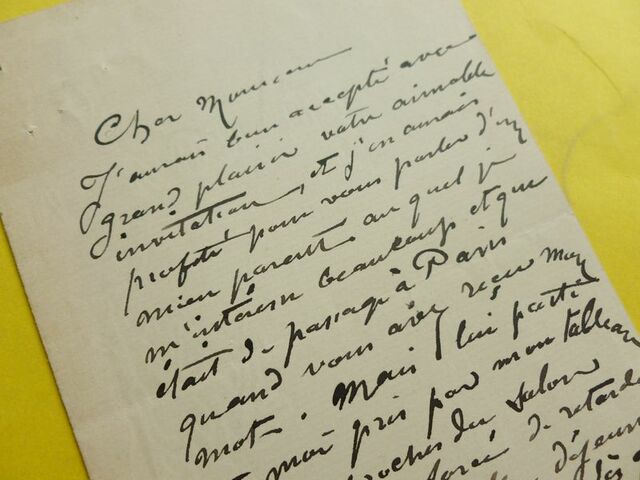 Cher Monsieur
J'aurais bien accepté avec
grand plaisir votre aimable
invitation, et j'en aurais
profité pour vous parler d'un
mien parent au quel je
m'intéresse beaucoup et que
était de passage à Paris
quand vous avez reçu mon
mot. Mais parti
moi pris par mon tableau
approches du Salon
forcé de retarder
déjeuner